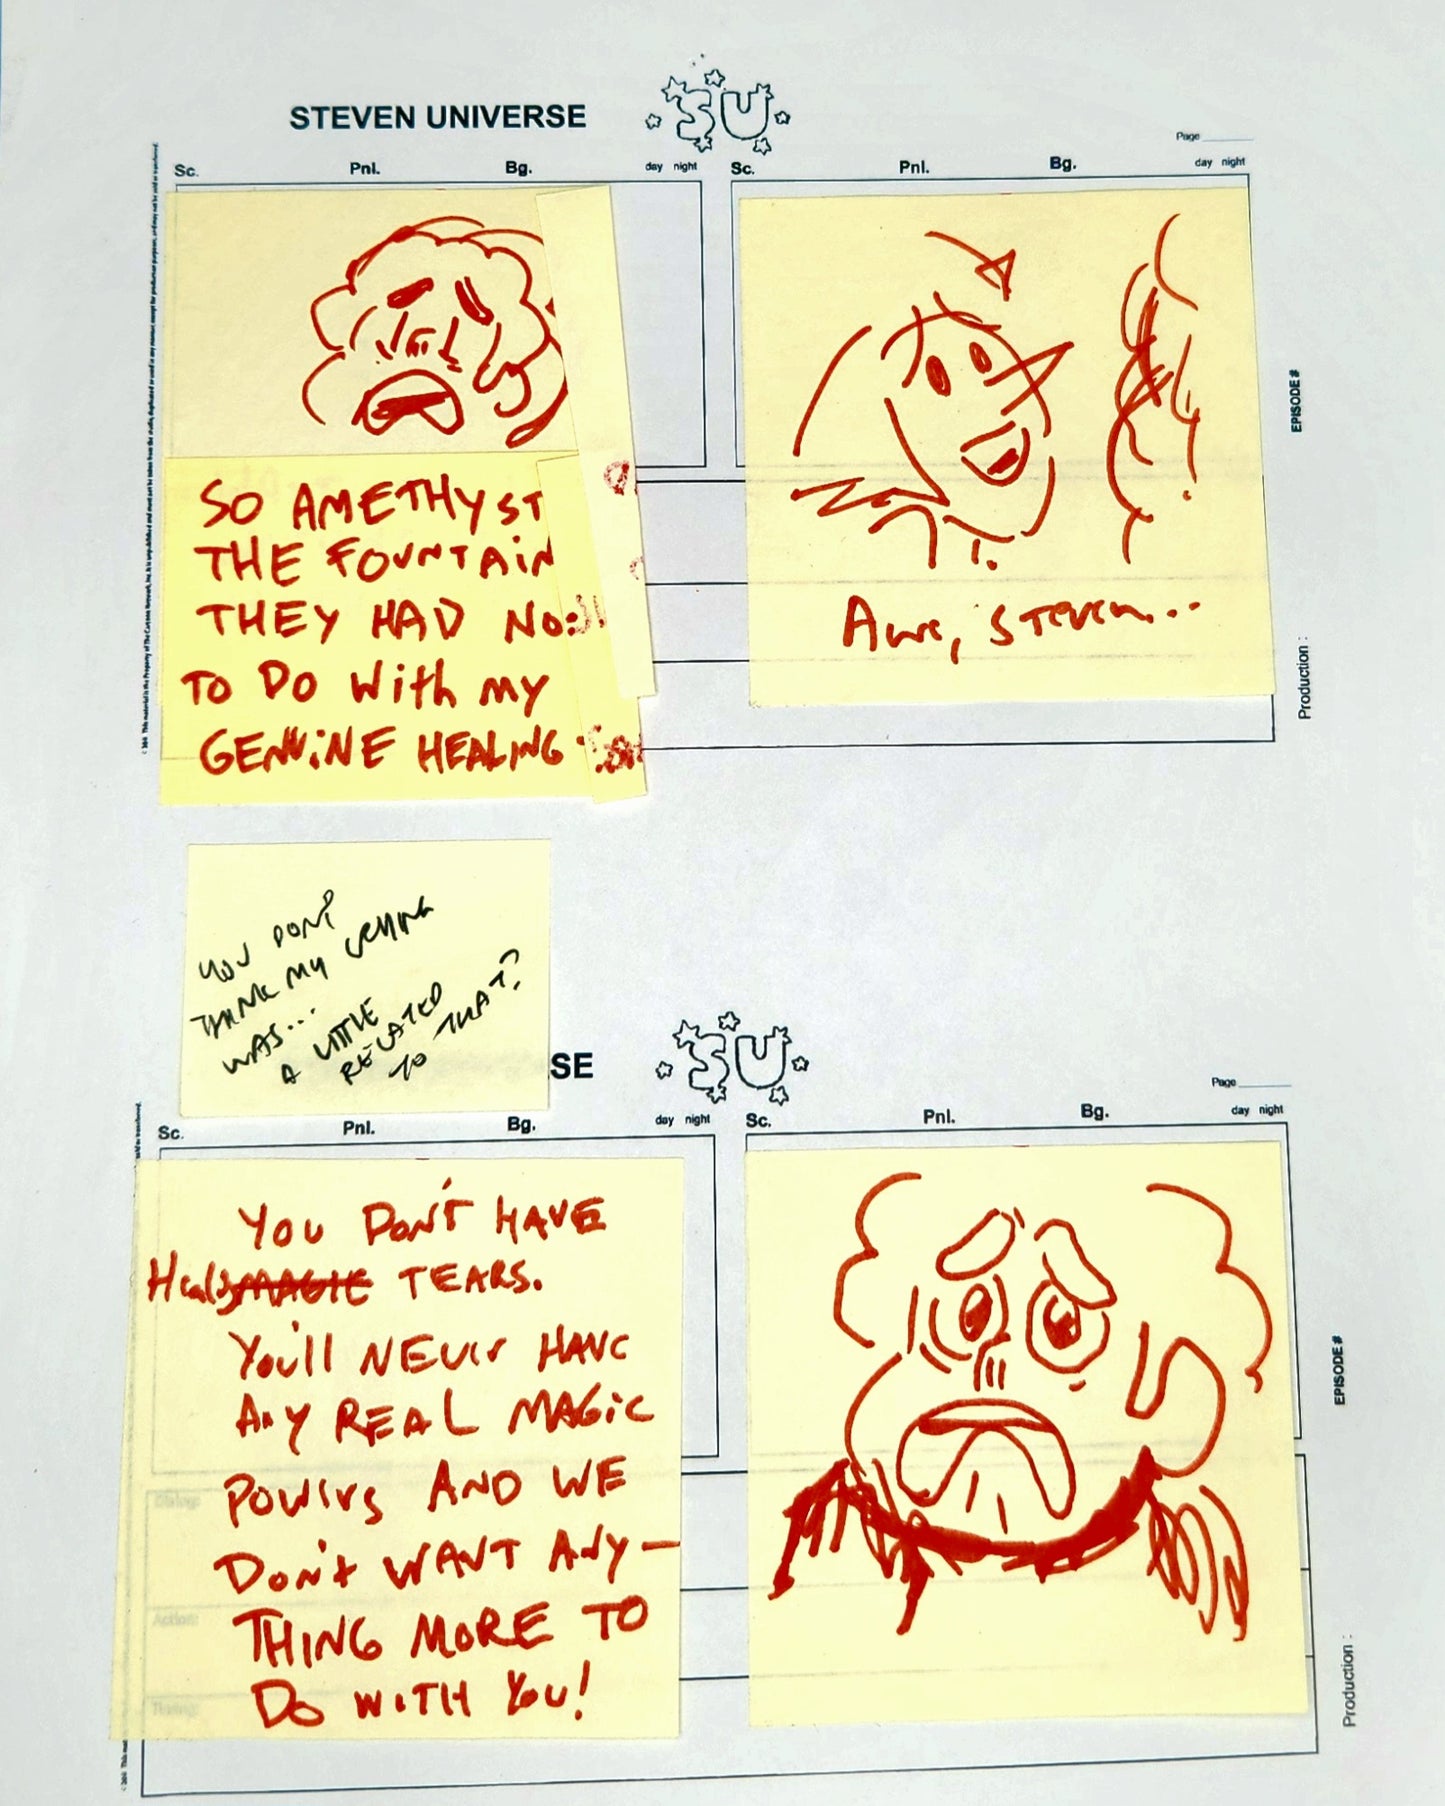 STEVEN UNIVERSE
SU
Page
Sc. Pnl. Bg. day night
Sc. Pnl. Bg. day night
SO AMETHYST
THE FOUNTAIN
THEY HAD NO
TO DO WITH MY
GENUINE HEALING
Aww, Steven...
EPISODE #
Production :
YOU DON'T
THINK MY CRYING
WAS...
A LITTLE
RELATED
TO THAT?
SE
SU
Page
Sc. Pnl. Bg. day night
Sc. Pnl. Bg. day night
YOU DON'T HAVE
Healing MAGIC TEARS.
You'll NEVER HAVE
ANY REAL MAGIC
POWERS AND WE
Don't WANT ANY—
THING MORE TO
DO WITH YOU!
Dialog:
Action:
Timing:
EPISODE #
Production :